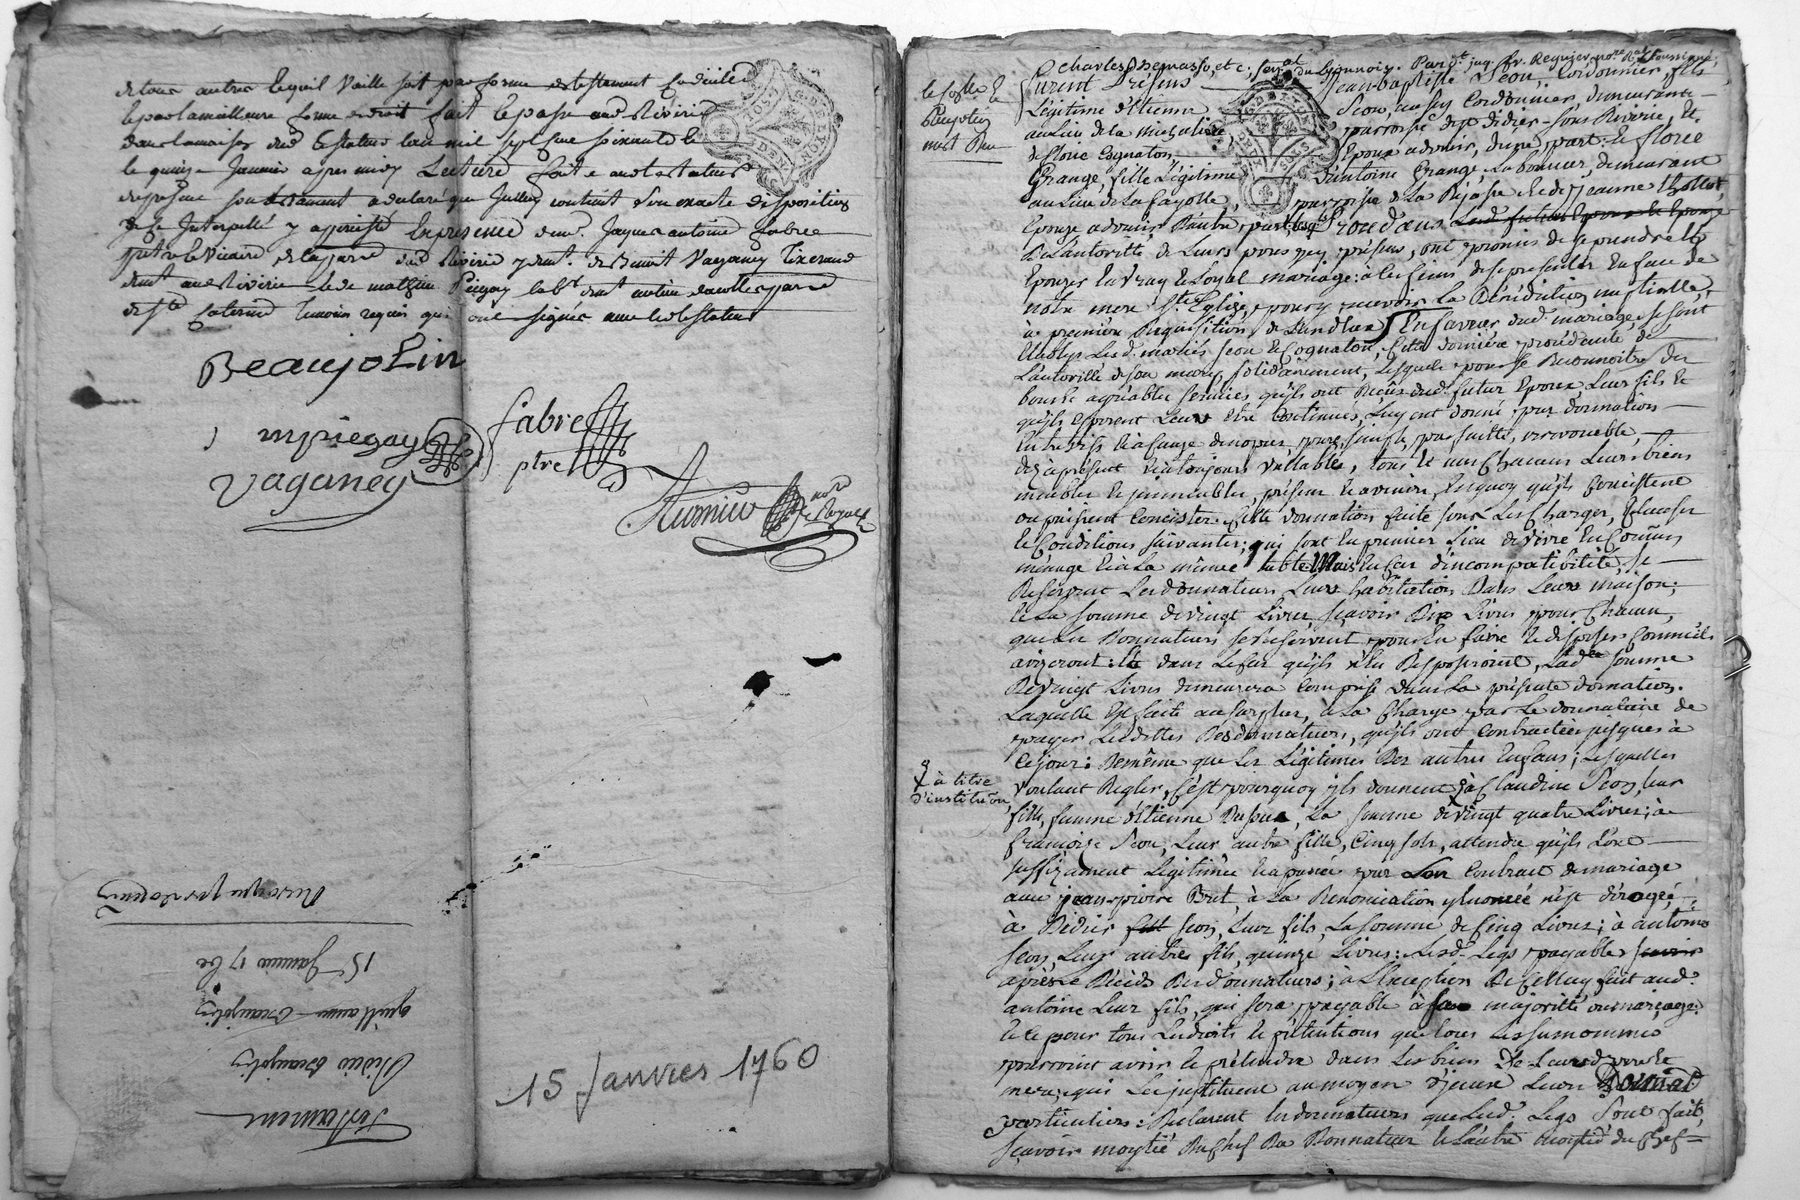 de tous autres lequil vaille soit par forme de testament codicile
le par la meilleure forme de droit fait le passé aud Riverie
dans la maison dud testateur l'an mil sept cent soixante le
le quinze Janvier apres midy Lecture faite aud testateur
de present son testament a declaré que Juelluy contient son exacte disposition
de ce Interpellé y a persisté En presence de m.r Jaques antoine fabre
pretre et vicaire de la parr dud Riverie y dem.t de Benoit Vaganey Tixerand
dem.t aud Riverie et de mathieu Piegay lab.r dem.t au lieu de la colle parr
de S.te Caterine Temoins requis qui ont signés avec le testateur
Beaujolin
mpiegay
fabre
ptre
vaganey
no.re
Royal
Testament
Didier Beaujolin
guillaume Beaujolin
15 Janvier 1760
15 Janvier 1760
Charles Dhemasso, et c. du Lyonnois. Par d.t
Furent Présens Jean-baptiste Séon, Cordonnier, fils
Légitime d'Etienne Séon, aussy Cordonnier, demeurants
au Lieu de la parroisse de S.t didier-sous-Riverie, Et
de florie Cognaton, Epoux advenir, d'une part: et florie
Grange, fille Légitime d'antoine Grange, Laboureur, demeurant
au Lieu de La fayolle, parroisse de La Rajasse et de Jeanne Thollot
Epouze advenir d'autre part: Lesq.ls procédans
de L'autorité de Leurs peres icy présens, ont promis de se prendre et
Epouzer En vray et Loyal mariage: à les fins de se presenter En face de
notre mere S.te Eglise, pour y recevoir La Bénédiction nuptialle,
à la premiere Requisition de L'un d'eux, En faveur dud. mariage, se sont
Etablys Lesd. mariés Séon et Cognaton, Cette derniere procédante de
L'autorité de son mary, solidairement, Lesquels pour se Reconnoitre des
bons et agréables services qu'ils ont Reçûs dud. futur Epoux Leur fils et
qu'ils esperent Leur être Continués, Luy ont donné par donnation
Entrevifs et à cause de nopces, pure, simple, parfaitte, irrevocable,
dez à présent et à toujours vallable, tous et uns chacuns Leurs biens
meubles et jmmeubles, présens et avenir, En quoy qu'ils Consistent
ou puissent Consister. Cette donnation faite sous Les Charges, Clauses
et Conditions suivantes; qui sont En premier Lieu de vivre En Commun
ménage Et à La même table Mais En Cas d'incompatibilité, se
Reservent Les donnateurs Leur habitation Dans Leur maison;
et La somme de vingt Livres sçavoir Dix Livres pour Chacun,
que Les Donnateurs se Reservent pour En faire et disposer Comme ils
aviseront: et dans Le Cas qu'ils n'en Disposeroient, Lad.e somme
De vingt Livres demeurera Comprise Dans La présente donnation.
Laquelle Est faite au surplus, à La Charge par Le donnataire de
payer Les dettes Des donnateurs, qu'ils ont Contractées jusques à
Ce jour: De même que Les Légitimes Des autres Enfans; Lesquelles
à titre
d'institu.on
voulant Regler, C'est pourquoy ils donnent à Claudine Séon, Leur
fille, femme d'Etienne Dupuis, La somme de vingt quatre Livres; à
françoise Séon, Leur autre fille, Cinq sols, attendu qu'ils L'ont
suffizament Légitimée Et apanée par son Contract de mariage
avec jean-pierre Bret, à La Renonciation y énoncée n'est dérogé;
à Didier Séon, Leur fils, La somme de Cinq Livres; à antoine
Séon, Leur autre fils, quinze Livres: Lesd. Legs payables
après Le Décès Des donnateurs; à L'exception De Celluy fait aud.
antoine Leur fils, qui sera payable à sa majorité ou mariage:
Et ce pour tous Les droits et prétentions que tous Les susnommés
pourroient avoir et prétendre dans Les biens De Leursd. pere et
mere, qui Les jnstituent au moyen d'jceux Leurs
particuliers: Declarent Les donnateurs que Lesd. Legs Sont faits
sçavoir moytié Du Chef Du Donnateur et L'autre moytié du Chef